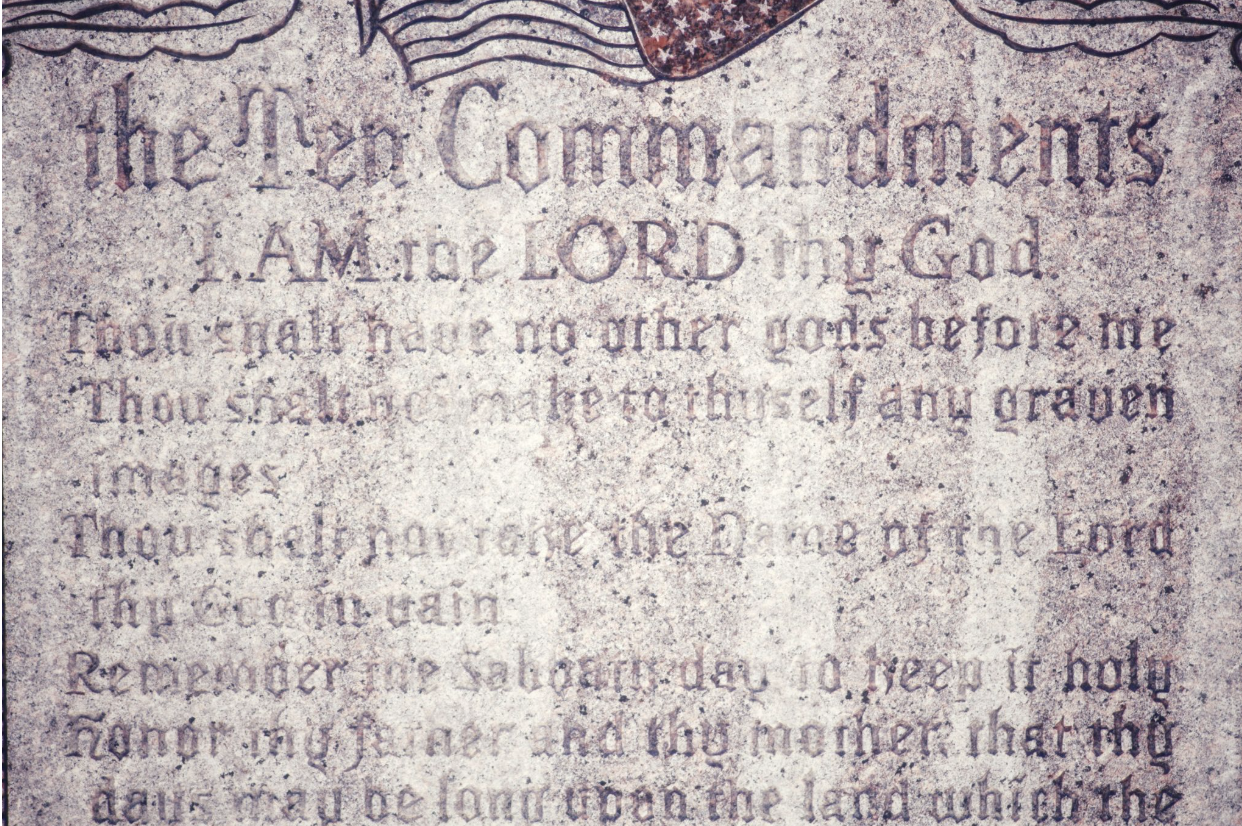 the Ten Commandments
I AM the LORD thy God.
Thou shalt have no other gods before me
Thou shalt not make to thyself any graven
images
Thou shalt not take the Name of the Lord
thy God in vain
Remember the Sabbath day to keep it holy.
Honor thy father and thy mother, that thy
days may be long upon the land which the